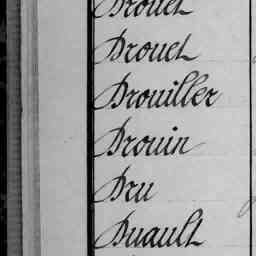 Drouet
Drouet
Drouiller
Drouin
Dru
Duault